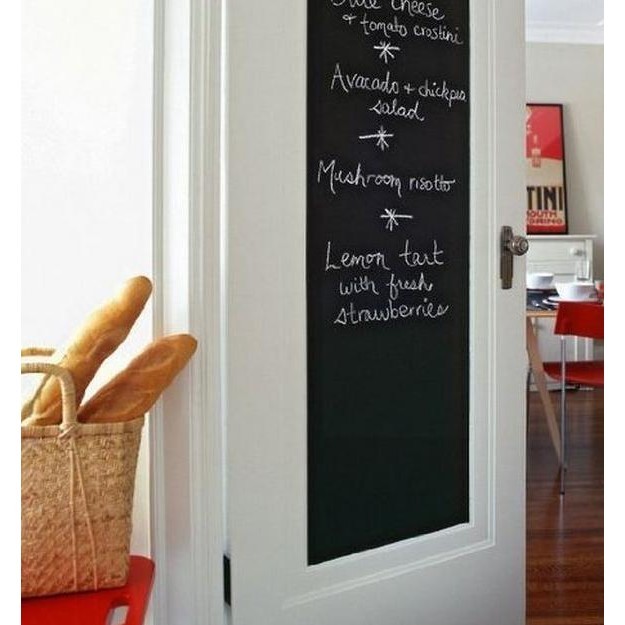 cheese
+ tomato crostini
Avacado + chickpea
salad
Mushroom risotto
Lemon tart
with fresh
strawberries
TINI